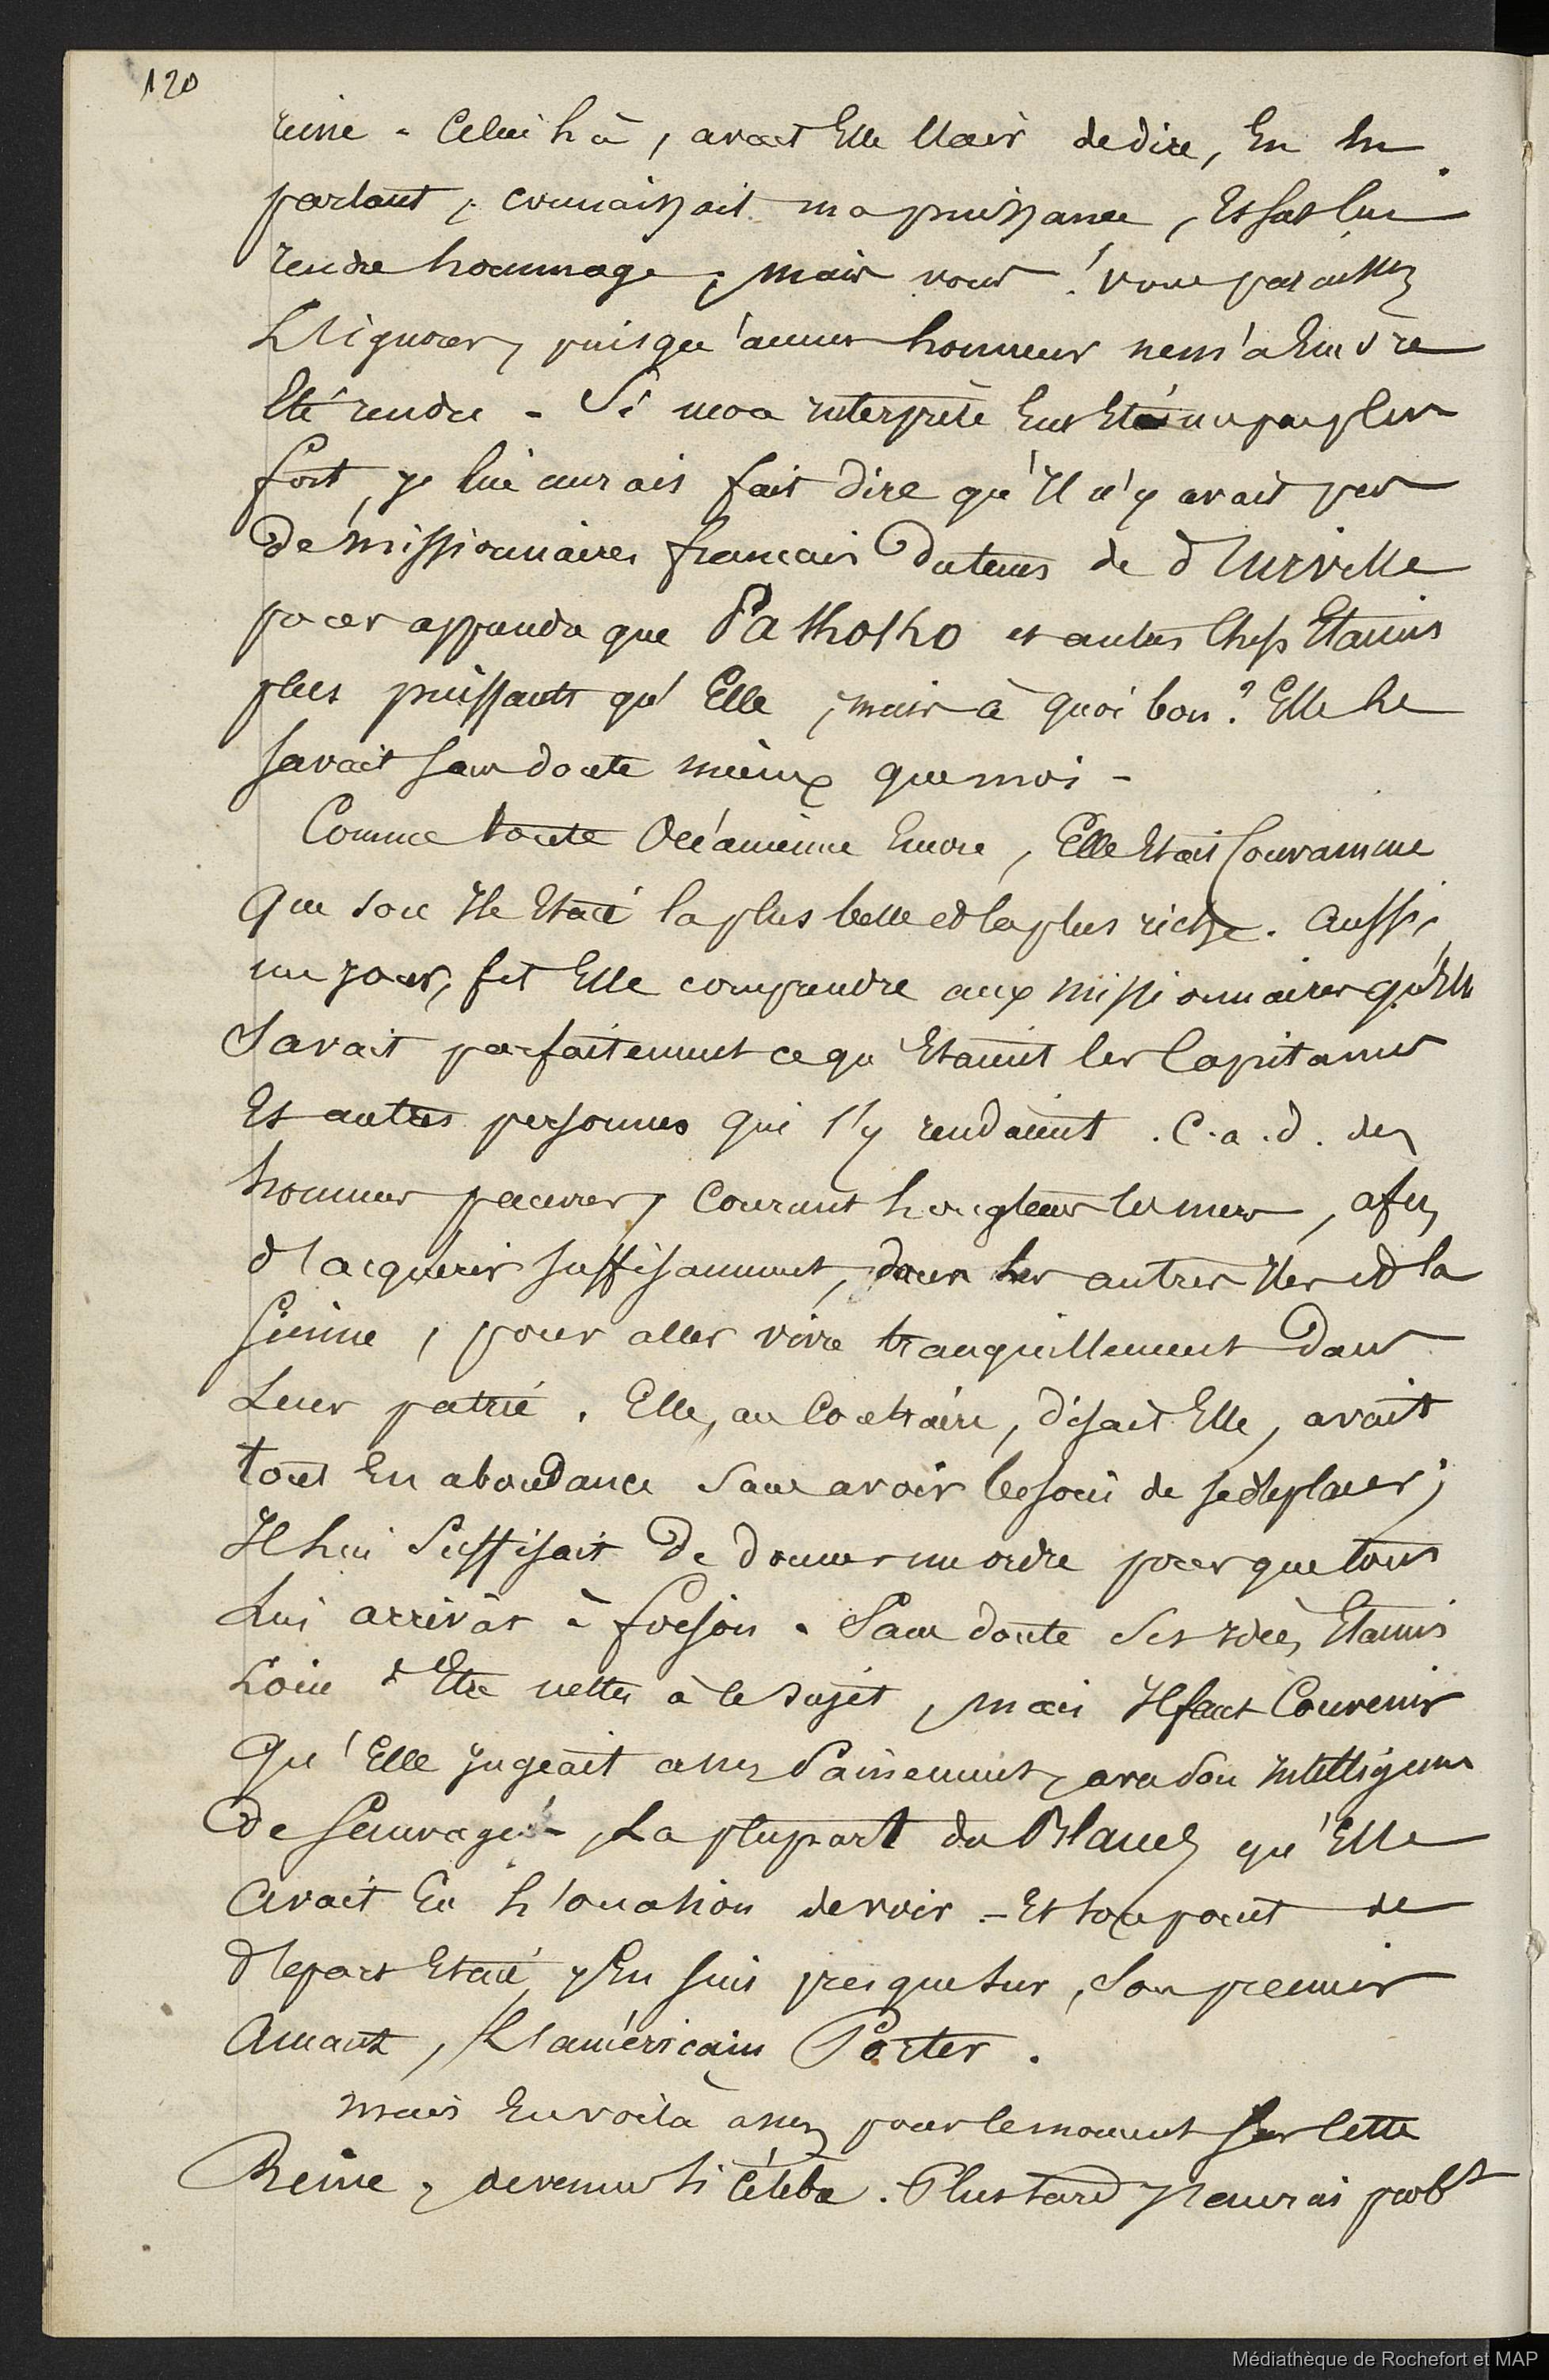 120
reine - Celui là, avait Elle l'air de dire, En en
parlant, connaissait ma puissance, Et sut lui
rendre hommage; mais vous! vous paraissez
L'ignorer, puisqu'aucun honneur ne m'a Encore
Eté rendu - Si mon interprète Eut Eté un peu plus
fort, je lui aurais fait dire qu'Il n'y avait pas
De missionnaires français Du tems de d'Urville
pour apprendre que Pakhokho et autres Chefs Etaient
plus puissants qu'Elle, mais à quoi bon? Elle le
savait sans doute mieux que moi -
Comme toute Océanienne Encore, Elle Etait Convaincue
que son Ile Etait la plus belle et la plus riche. Aussi,
un jour, fit Elle comprendre aux missionnaires qu'Elle
Savait parfaitement ce qu'Etaient les Capitaines
Et autres personnes qui s'y rendaient. C.a.d. des
hommes pauvres, Courant les mers, afin
d'acquérir suffisamment, dans les autres Iles et la
sienne, pour aller vivre tranquillement Dans
Leur patrie. Elle, au Contraire, disait Elle, avait
tout En abondance Sans avoir besoin de se déplacer;
Il lui Suffisait De donner un ordre pour que tout
Lui arrivât à foison. Sans doute Ses idées Etaient
Loin d'Etre nettes à ce Sujet, mais Il faut Convenir
Qu'Elle jugeait assez Sainement, avec Son intelligence
De Sauvage - La plupart des Blancs qu'Elle
Avait Eu L'occasion de voir - Et son point de
départ Etait, j'En suis presque sur, Son premier
Amant, L'américain Porter.
Mais En voilà assez pour le moment sur Cette
Reine, devenue si Célèbre. Plus tard j'aurai probt
Médiathèque de Rochefort et MAP